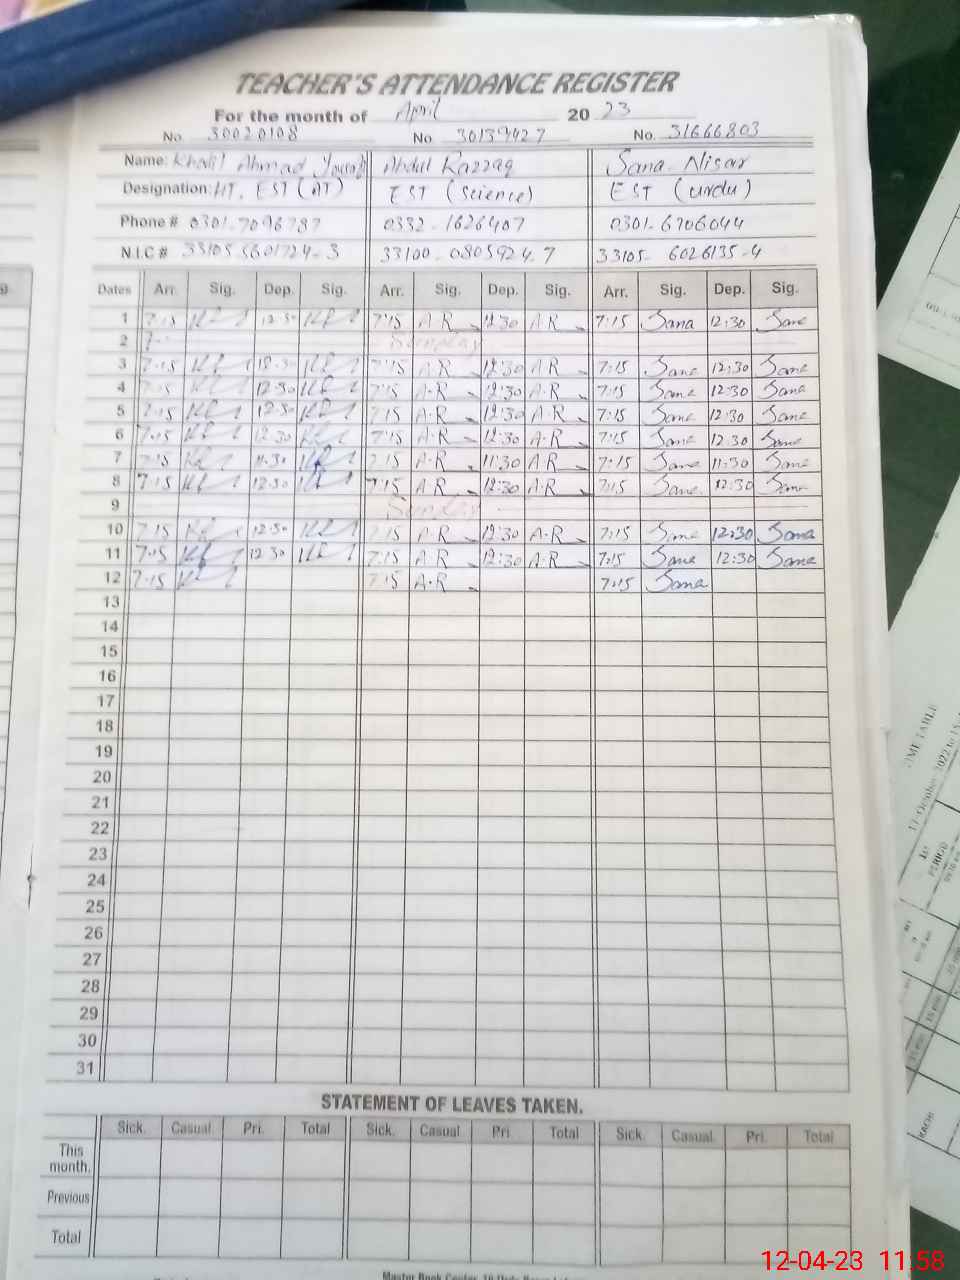 TEACHER'S ATTENDANCE REGISTER
For the month of April 20 23
No. 30020108 No 30139427 No. 31666803
Name: Khalil Ahmad Abdul Razzaq Sana Nisar
Designation: HT, EST (AT) EST (Science) EST (urdu)
Phone # 0301-7096787 0332-1626407 0301-6706044
N.I.C # 33105 5601724-3 33100-0805924-7 33105-6026135-4
Dates Arr. Sig. Dep. Sig. Arr. Sig. Dep. Sig. Arr. Sig. Dep. Sig.
1 7:15 12:30 7:15 A.R 12:30 A.R 7:15 Sana 12:30 Sana
2 Sunday
3 7:15 12:30 7:15 A.R 12:30 A.R 7:15 Sana 12:30 Sana
4 7:15 12:30 7:15 A.R 12:30 A.R 7:15 Sana 12:30 Sana
5 7:15 12:30 7:15 A.R 12:30 A.R 7:15 Sana 12:30 Sana
6 7:15 12:30 7:15 A.R 12:30 A.R 7:15 Sana 12:30 Sana
7 7:15 11:30 7:15 A.R 11:30 A.R 7:15 Sana 11:30 Sana
8 7:15 12:30 7:15 A.R 12:30 A.R 7:15 Sana 12:30 Sana
9 Sunday
10 7:15 12:30 7:15 A.R 12:30 A.R 7:15 Sana 12:30 Sana
11 7:15 12:30 7:15 A.R 12:30 A.R 7:15 Sana 12:30 Sana
12 7:15 7:15 A.R 7:15 Sana
13
14
15
16
17
18
19
20
21
22
23
24
25
26
27
28
29
30
31
STATEMENT OF LEAVES TAKEN.
Sick. Casual Pri. Total Sick. Casual Pri. Total Sick. Casual. Pri. Total
This month.
Previous
Total
Master Book Center
TIME TABLE
17-October 2022 to 15
1st
PERIOD
12-04-23 11:58